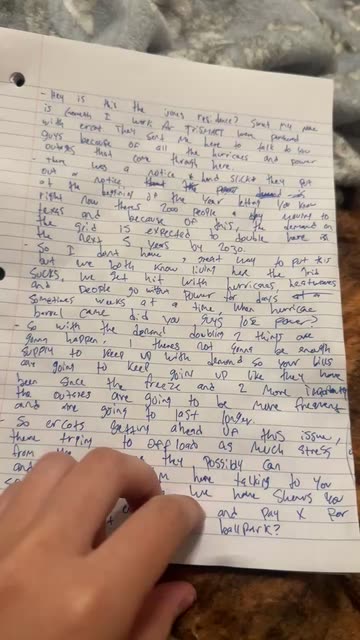 - Hey is this the jones residence? Sweet my name
is Kenneth I work for TriSMART been partnered
with ercot They sent me here to talk to you
guys because of all the hurricanes and power
outages that come through here
- there was a notice & land slicks they put
out a notice
at the beginning of the year letting you know
right now theres 2000 people a day moving to
texas and because of this, the demand on
the grid is expected to double here in
the next 5 years by 2030.
- So I dont have great way to put this
but we both know living here the grid
sucks, we get hit with hurricanes, heatwaves
and people go without power for days
sometimes weeks at a time, when hurricane
beryl came did you guys lose power?
- So with the demand doubling 2 things are
gonna happen, 1 theres not gonna be enough
supply to keep up with demand so your bills
are going to keep goin up like they have
been since the freeze and 2 more importantly
the outages are going to be more frequent
and are going to last longer.
- So ercots getting ahead of this issue,
there trying to offload as much stress
from the they possibly can
and im here talking to you
we have shows you
and pay X per
ballpark?